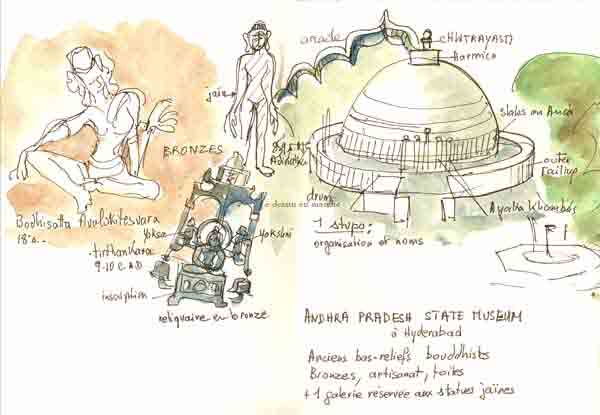 arcade
CHHTRAYASTI
harmica
jain
slabs on Anda
BRONZES
outer
railing
drum
Ayaka Khambas
© dessin en marche
Bodhisatta Avalokitesvara
18è..
yaksa
yakshi
1 stupa:
organisation et noms
tirthankara
9-10 C AD
inscription
reliquaire en bronze
ANDHRA PRADESH STATE MUSEUM
à Hyderabad
Anciens bas-reliefs bouddhistes
Bronzes, artisanat, toiles
+ 1 galerie réservée aux statues jaïnes